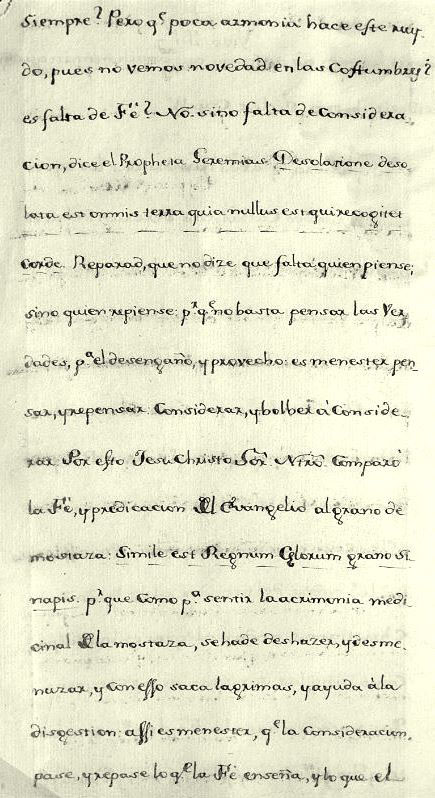 siempre? Pero q.e poca armonia hace este ruy
do, pues no vemos novedad en las Costumbres?
es falta de Feè? No. sino falta de considera
cion, dice el Propheta Jeremias. Desolatione deso
lata est omnis terra quia nullus est qui recogitet
corde. Reparad, que no dize que falta quien piense,
sino quien repiense: p.r q.e no basta pensar las Ver
dades, p.a el desengaño, y provecho: es menester pen
sar, y repensar: Considerar, y bolber à Conside
rar. Por esto Jesu Christo Señ.r Ntrô. Comparò
la Feè, y predicacion del Evangelio al grano de
mostaza: Simile est Regnum Cęlorum grano si
napis. p.r que como p.a sentir la acrimonia medi
cinal de la mostaza, se ha de deshazer, y desme
nuzar, y con esso saca lagrimas, y ayuda à la
disgestion: assi es menester, q.e la Consideracion.
passe, y repase lo q.e la Feè enseña, y lo que el